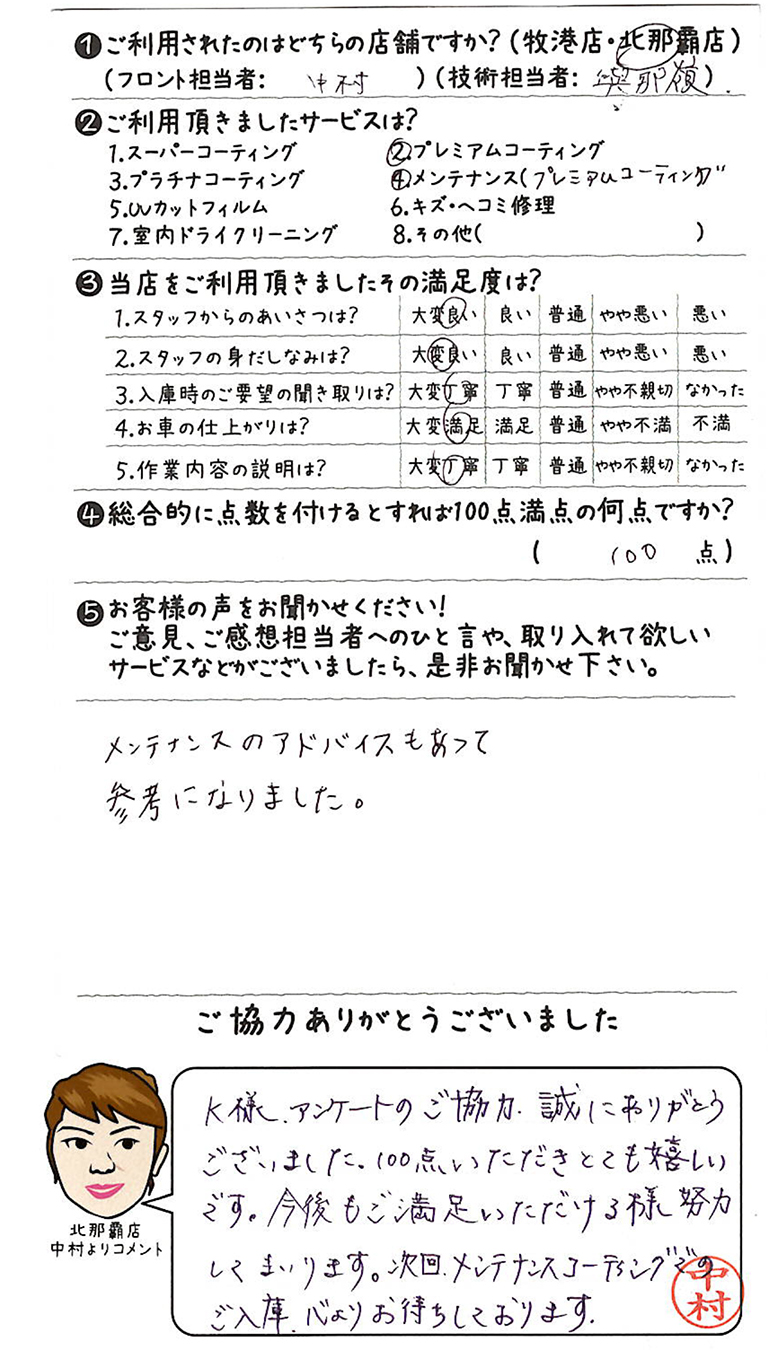 ❶ご利用されたのはどちらの店舗ですか?(牧港店・北那覇店)
(フロント担当者: 中村 )(技術担当者: 與那嶺)
❷ご利用頂きましたサービスは?
1.スーパーコーティング 2.プレミアムコーティング
3.プラチナコーティング 4.メンテナンス(プレミアムコーティング
5.UVカットフィルム 6.キズ・ヘコミ修理
7.室内ドライクリーニング 8.その他( )
❸当店をご利用頂きましたその満足度は?
1.スタッフからのあいさつは? 大変良い 良い 普通 やや悪い 悪い
2.スタッフの身だしなみは? 大変良い 良い 普通 やや悪い 悪い
3.入庫時のご要望の聞き取りは? 大変丁寧 丁寧 普通 やや不親切 なかった
4.お車の仕上がりは? 大変満足 満足 普通 やや不満 不満
5.作業内容の説明は? 大変丁寧 丁寧 普通 やや不親切 なかった
❹総合的に点数を付けるとすれば100点満点の何点ですか?
( 100 点)
❺お客様の声をお聞かせください!
ご意見、ご感想担当者へのひと言や、取り入れて欲しい
サービスなどがございましたら、是非お聞かせ下さい。
メンテナンスのアドバイスもあって
参考になりました。
ご協力ありがとうございました
K様、アンケートのご協力、誠にありがとう
ございました。100点いただきとても嬉しい
です。今後もご満足いただける様努力
してまいります。次回、メンテナンスコーティングでの
ご入庫、心よりお待ちしております。
中村
北那覇店
中村よりコメント